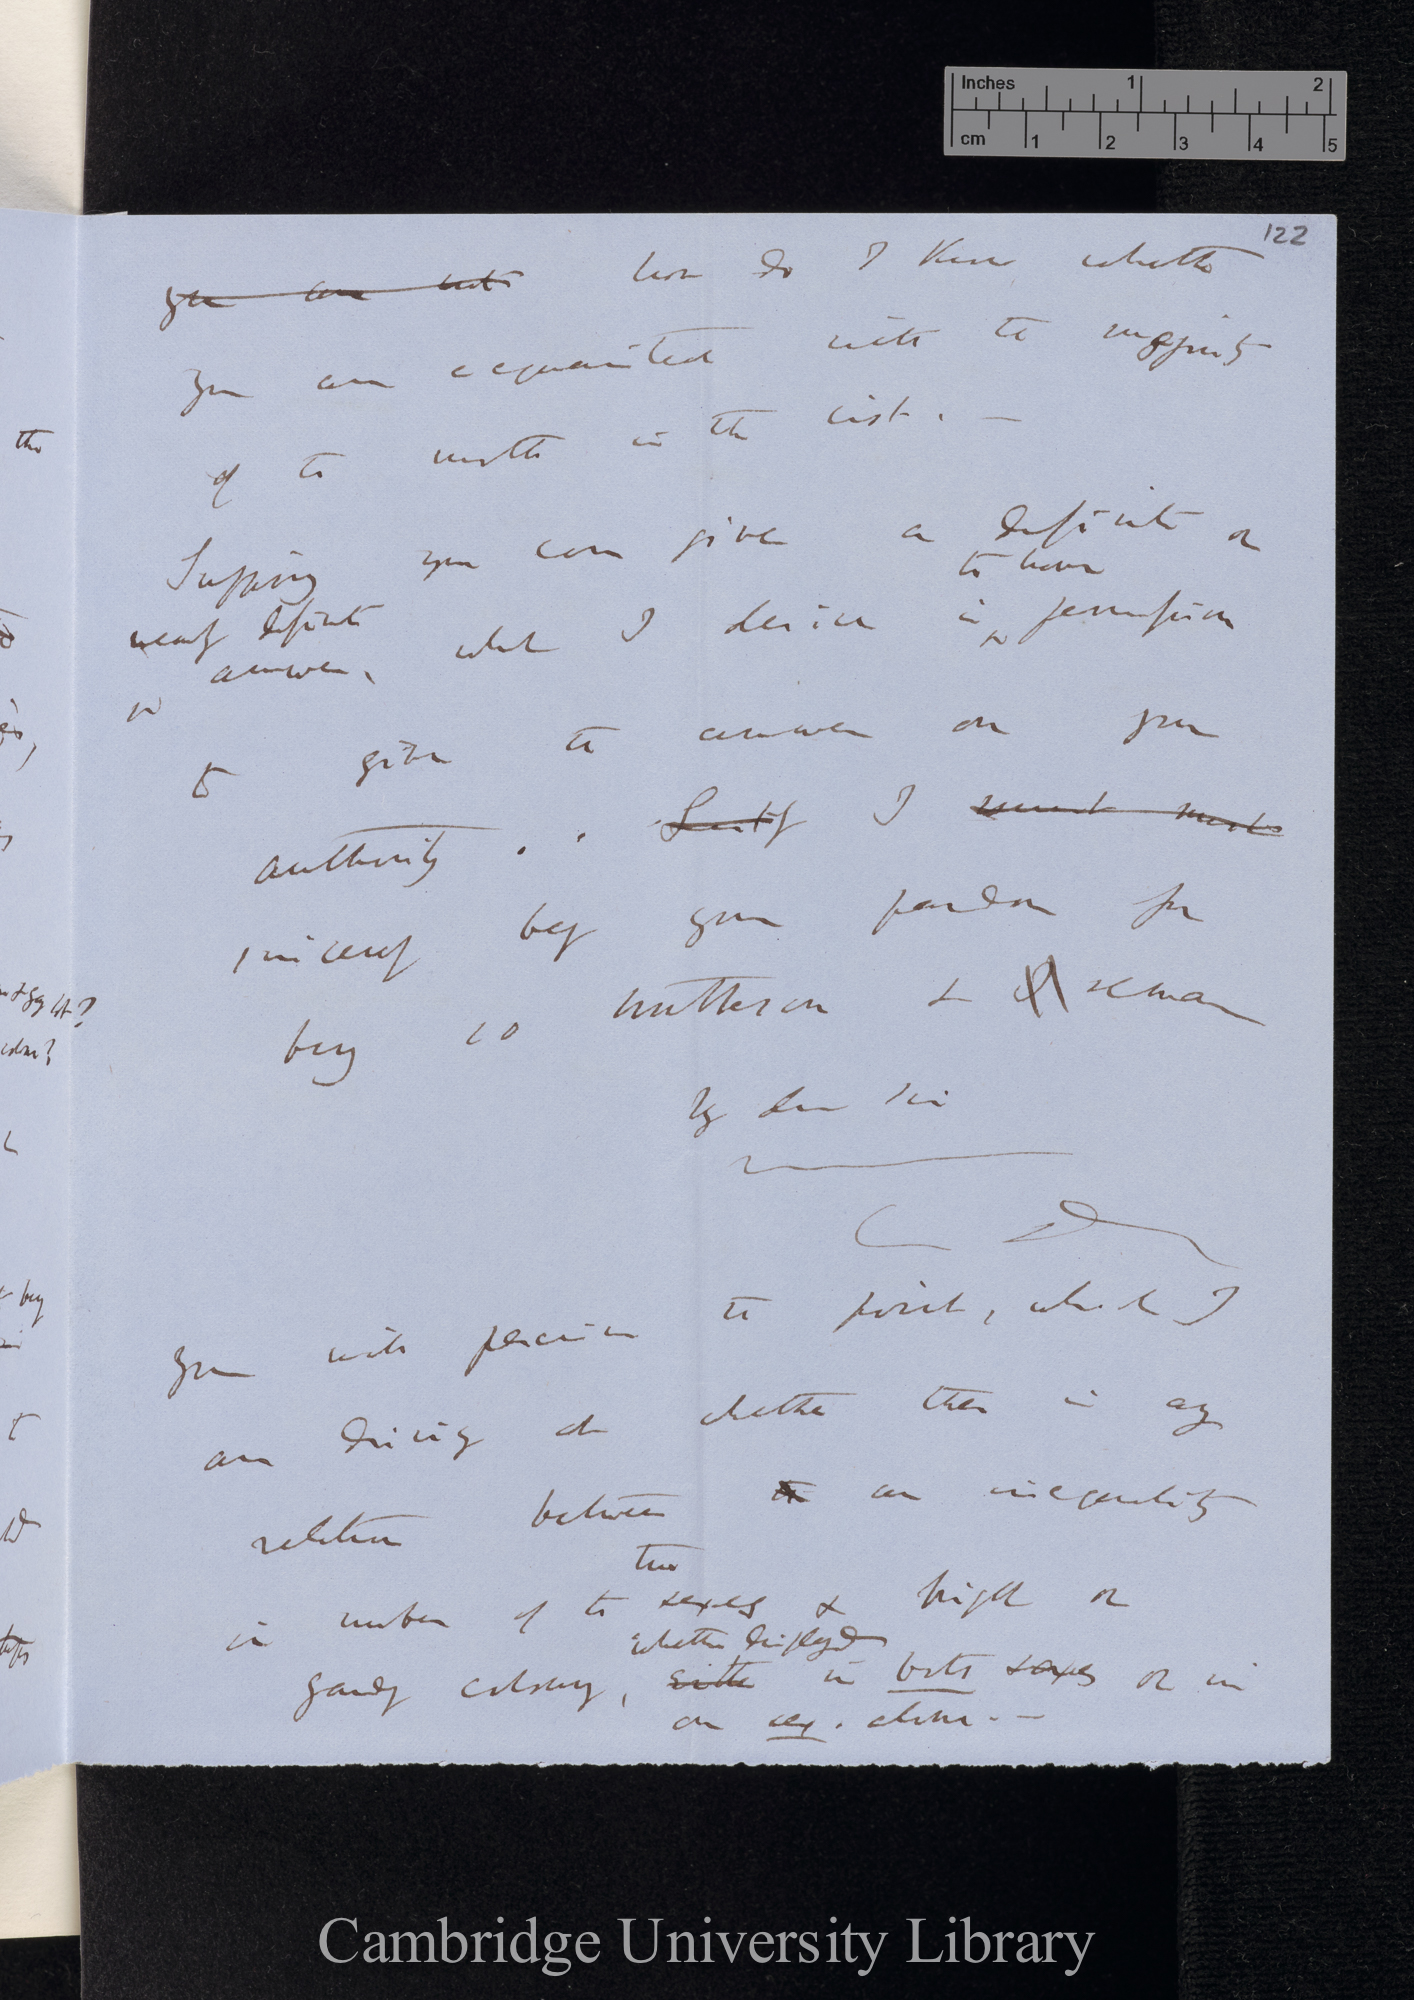 Inches 1 2
cm 1 2 3 4 5
122
you are not how do I know whether
you are acquainted with the majority
of the moths in the list. —
Supposing you can give a definite or
to have
nearly definite answer, what I desire is permission
to give the answer on your
authority. . Lastly I must
sincerely beg your pardon for
being so &
My dear Sir
C D
You will perceive the point, which I
am driving at whether there is any
relation between the an inequality
two
in number of the sexes & bright or
whether displayed
gaudy colouring, either in both sexes or in
one sex. alone. —
tho
& beg
Cambridge University Library